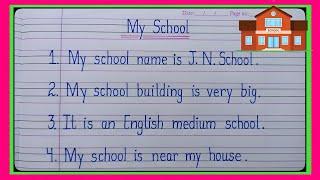 My School
1. My school name is J. N. School.
2. My school building is very big.
3. It is an English medium school.
4. My school is near my house.